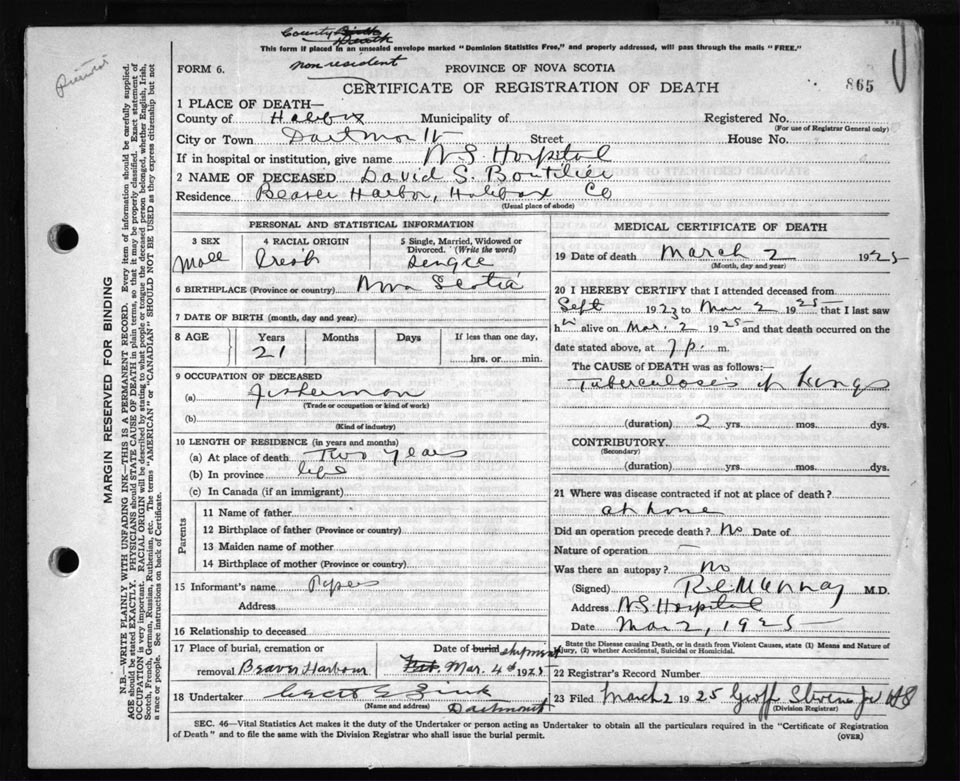 County Death
This form if placed in an unsealed envelope marked "Dominion Statistics Free," and properly addressed, will pass through the mails "FREE."
non resident
FORM 6. PROVINCE OF NOVA SCOTIA
865
CERTIFICATE OF REGISTRATION OF DEATH
1 PLACE OF DEATH—
County of Halifax Municipality of Registered No.
(For use of Registrar General only)
City or Town Dartmouth Street House No.
If in hospital or institution, give name N.S. Hospital
2 NAME OF DECEASED David S. Boutilier
Residence Beaver Harbor, Halifax Co
(Usual place of abode)
PERSONAL AND STATISTICAL INFORMATION
3 SEX 4 RACIAL ORIGIN 5 Single, Married, Widowed or Divorced. (Write the word)
Male Single
6 BIRTHPLACE (Province or country) Nova Scotia
7 DATE OF BIRTH (month, day and year)
8 AGE Years Months Days If less than one day,
21 hrs. or min.
9 OCCUPATION OF DECEASED
(a) Fisherman
(Trade or occupation or kind of work)
(b)
(Kind of industry)
10 LENGTH OF RESIDENCE (in years and months)
(a) At place of death Two years
(b) In province life
(c) In Canada (if an immigrant)
Parents
11 Name of father
12 Birthplace of father (Province or country)
13 Maiden name of mother
14 Birthplace of mother (Province or country)
15 Informant's name Papers
Address
16 Relationship to deceased
17 Place of burial, cremation or Date of burial shipment
removal Beaver Harbour Mar. 4th 1925
18 Undertaker
(Name and address) Dartmouth
MEDICAL CERTIFICATE OF DEATH
19 Date of death March 2 1925
(Month, day and year)
20 I HEREBY CERTIFY that I attended deceased from
Sept 1923 to Mar 2 1925 that I last saw
h im alive on Mar. 2 1925 and that death occurred on
date stated above, at 7 p. m.
The CAUSE of DEATH was as follows:
Tuberculosis of Lungs
(duration) 2 yrs. mos. dys.
CONTRIBUTORY.
(Secondary)
(duration) yrs. mos. dys.
21 Where was disease contracted if not at place of death?
at home
Did an operation precede death? No Date of
Nature of operation —
Was there an autopsy? No
(Signed) R E Murray M.D.
Address N.S. Hospital
Date Mar 2, 1925
State the Disease causing Death, or in death from Violent Causes, state (1) Means and Nature of Injury, (2) whether Accidental, Suicidal or Homicidal.
22 Registrar's Record Number
23 Filed March 2 1925 Geoffr Stevens
(Division Registrar)
SEC. 46—Vital Statistics Act makes it the duty of the Undertaker or person acting as Undertaker to obtain all the particulars required in the "Certificate of Registration
of Death" and to file the same with the Division Registrar who shall issue the burial permit.
(OVER)
MARGIN RESERVED FOR BINDING
N.B.—WRITE PLAINLY WITH UNFADING INK—THIS IS A PERMANENT RECORD. Every item of information should be carefully supplied.
AGE should be stated EXACTLY. PHYSICIANS should STATE CAUSE OF DEATH in plain terms, so that it may be properly classified. Exact statement of
OCCUPATION is very important. RACIAL ORIGIN will be described by stating to what people or tongue the deceased person belonged, whether English, Irish,
Scotch, French, German, Russian, Ruthenian, etc. The terms "AMERICAN" or "CANADIAN" SHOULD NOT BE USED as they express citizenship but not
a race or people. See instructions on back of Certificate.